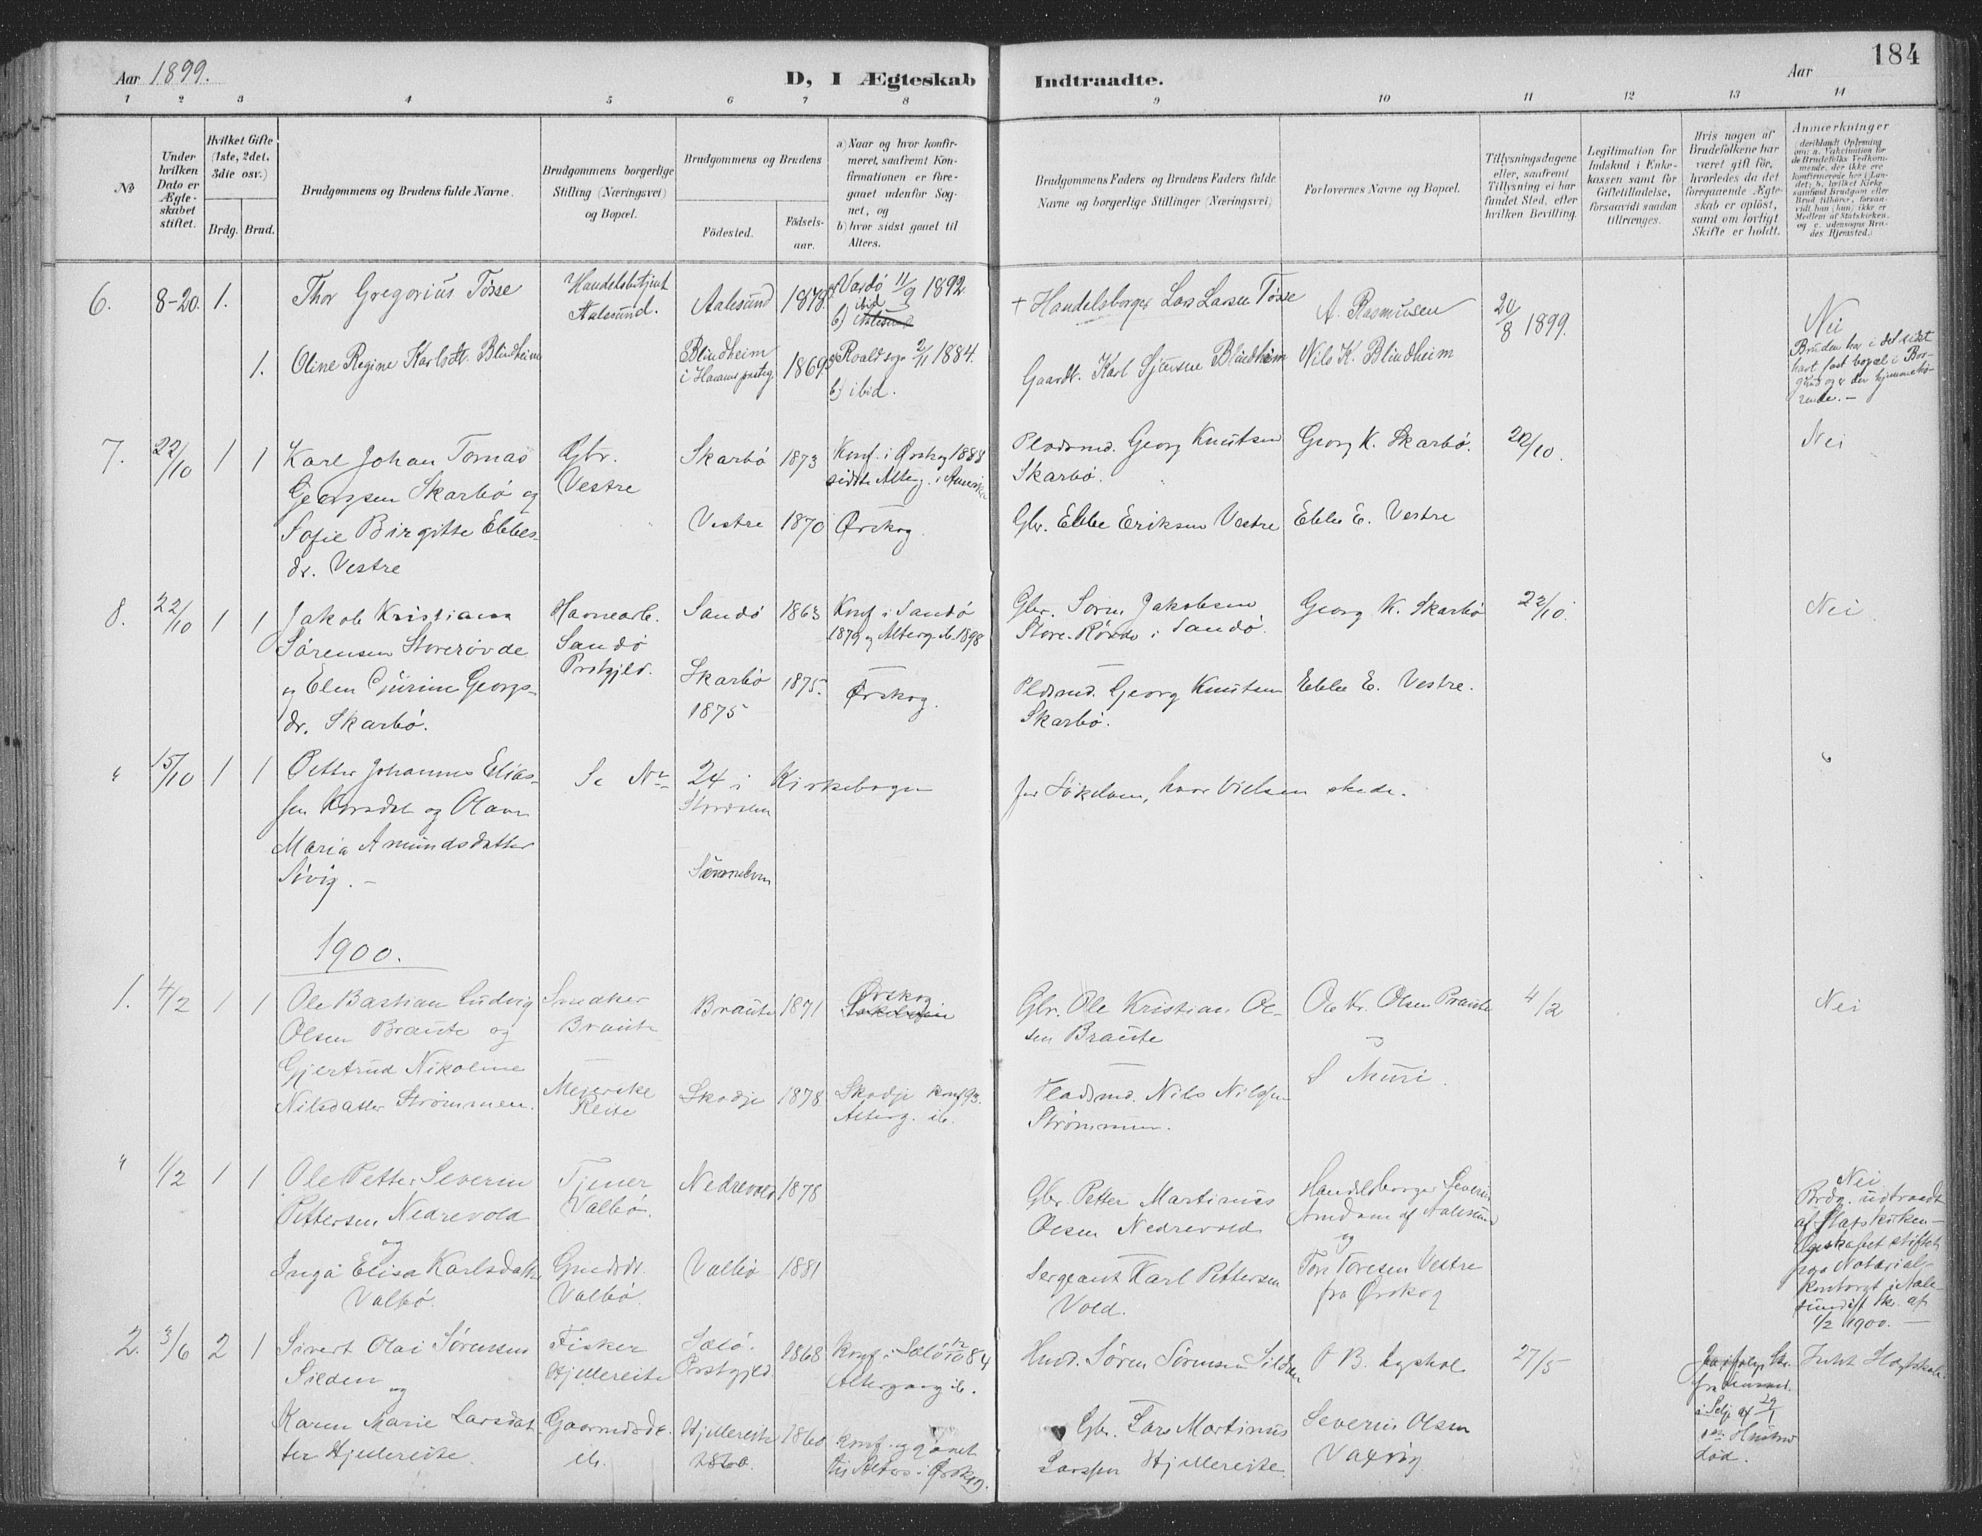 184
Aar 1899.
D, I Ægteskab Indtraadte.
Aar
1 2 3 4 5 6 7 8 9 10 11 12 13 14
№
Under hvilken Dato er Ægteskabet stiftet.
Hvilket Gifte (1ste, 2det, 3die osv.)
Brdg. Brud.
Brudgommens og Brudens fulde Navne.
Brudgommens borgerlige Stilling (Næringsvei) og Bopæl.
Brudgommens og Brudens
Födested.
Födselsaar.
a) Naar og hvor konfirmeret, saafremt Konfirmationen er foregaaet udenfor Sognet, og
b) hvor sidst gaaet til Alters.
Brudgommens Faders og Brudens Faders fulde Navne og borgerlige Stillinger (Næringsvei)
Forlovernes Navne og Bopæl.
Tillysningsdagene eller, saafremt Tillysning ei har fundet Sted, efter hvilken Bevilling.
Legitimation for Indskud i Enkekassen samt for Giftetilladelse, forsaavidt saadan tiltrænges.
Hvis nogen af Brudefolkene har været gift för, hvorledes da det foregaaende Ægteskab er oplöst, samt om lovligt Skifte er holdt.
Anmærkninger
6. 8-20. 1.
Thor Gregorius Tösse
Handelsbetjent Aalesund.
Aalesund 1878.
Vardö 11/9 1892
b) ibid
+ Handelsborger Lars Larsen Tösse
A. Rasmussen
20/8 1899.
Nei
1. Oline Regine Karlsdt. Blindheim
Blindheim i Harams prstg
1869.
Roald sogn 2/11 1884.
b) ibid.
Gaardb. Karl Blindheim
Nils K. Blindheim
Bruden har i det sidst havt fast bopæl i Borgund og er der hjemmehörende. -
7. 22/10 1 1
Karl Johan Tomas Georgsen Skarbö og
Sofie Birgitte Ebbesdr. Vestre
Gbr. Vestre
Skarbö 1873
Vestre 1870
Konf. i Ørskog 1888 sidste Alterg. i Amerika
Ørskog.
Pladsmd. Georg Knutsen Skarbö.
Gbr. Ebbe Eriksen Vestre
Georg K. Skarbö.
Ebbe E. Vestre
22/10.
Nei
8. 22/10 1 1
Jakob Kristian Sörensen Storerövde
og Elen Gjurine Georgsdr. Skarbö.
Havnearb. Sandö Prstgjld.
Sandö 1863
Skarbö 1875.
1875
Konf. i Sandö 1879 og Alterg. ib. 1898
Ørskog.
Gbr. Sören Jakobsen Store-Rövde i Sandö.
Pladsmd. Georg Knutsen Skarbö.
Georg K. Skarbö
Ebbe E. Vestre.
22/10.
Nei.
" 15/10 1 1
Petter Johannes Eliassen Korsdal og Olave
Maria Amundsdatter Sövig. -
Se Nr. 24 i Kirkebogen for Sökelven, hvor Vielsen skede.
1900.
1. 4/2 1 1
Ole Bastian Ludvig Olsen Braute og
Gjertrud Nikoline Nilsdatter Strömmen.
Snedker Braute
Meierske Reite
Braute 1871
Skodje 1878
Ørskog
Skodje konf 93. Alterg. ib.
Gbr. Ole Kristian Olsen Braute
Pladsmd. Nils Nilssen Strömmen.
Ole Kr. Olsen Braute
S Muri.
4/2
Nei
" 1/2 1 1
Ole Petter Severin Pettersen Nedrevold
og
Inga Elisa Karlsdatter Valbö.
Tjener Valbö.
Gmdsdt. Valbö.
Nedrevold 1878
Valbö 1881
Gbr. Petter Martinus Olsen Nedrevold
Sergeant Karl Pettersen Vold.
Handelsborger Severin Amdam af Aalesund
og
Tore Toresen Vestre fra Ørskog
Nei
Brdg. udtraadt af Statskirken - Ægteskabet stiftet paa Notarialkontoret i Aalesund ift skr. af 1/2 1900. -
2. 3/6 2 1
Sivert Olai Sörensen Silden
og
Karen Marie Larsdatter Hjellereite.
Fisker Hjellereite
Gaarmdsdt. ib.
Selö. Prstgjld. 1868
Hjellereite 1860
1860
Konf. i Selö 12/10 84 Altergang ib.
Konf. og gaaet til Alters i Ørskog.
Hmd. Sören Sörensen Silden
Gbr. Lars Martinus Larssen Hjellereite.
O B. Lyshol
Severin Olsen Vaxvig
27/5
i Selje af 29/1
död.